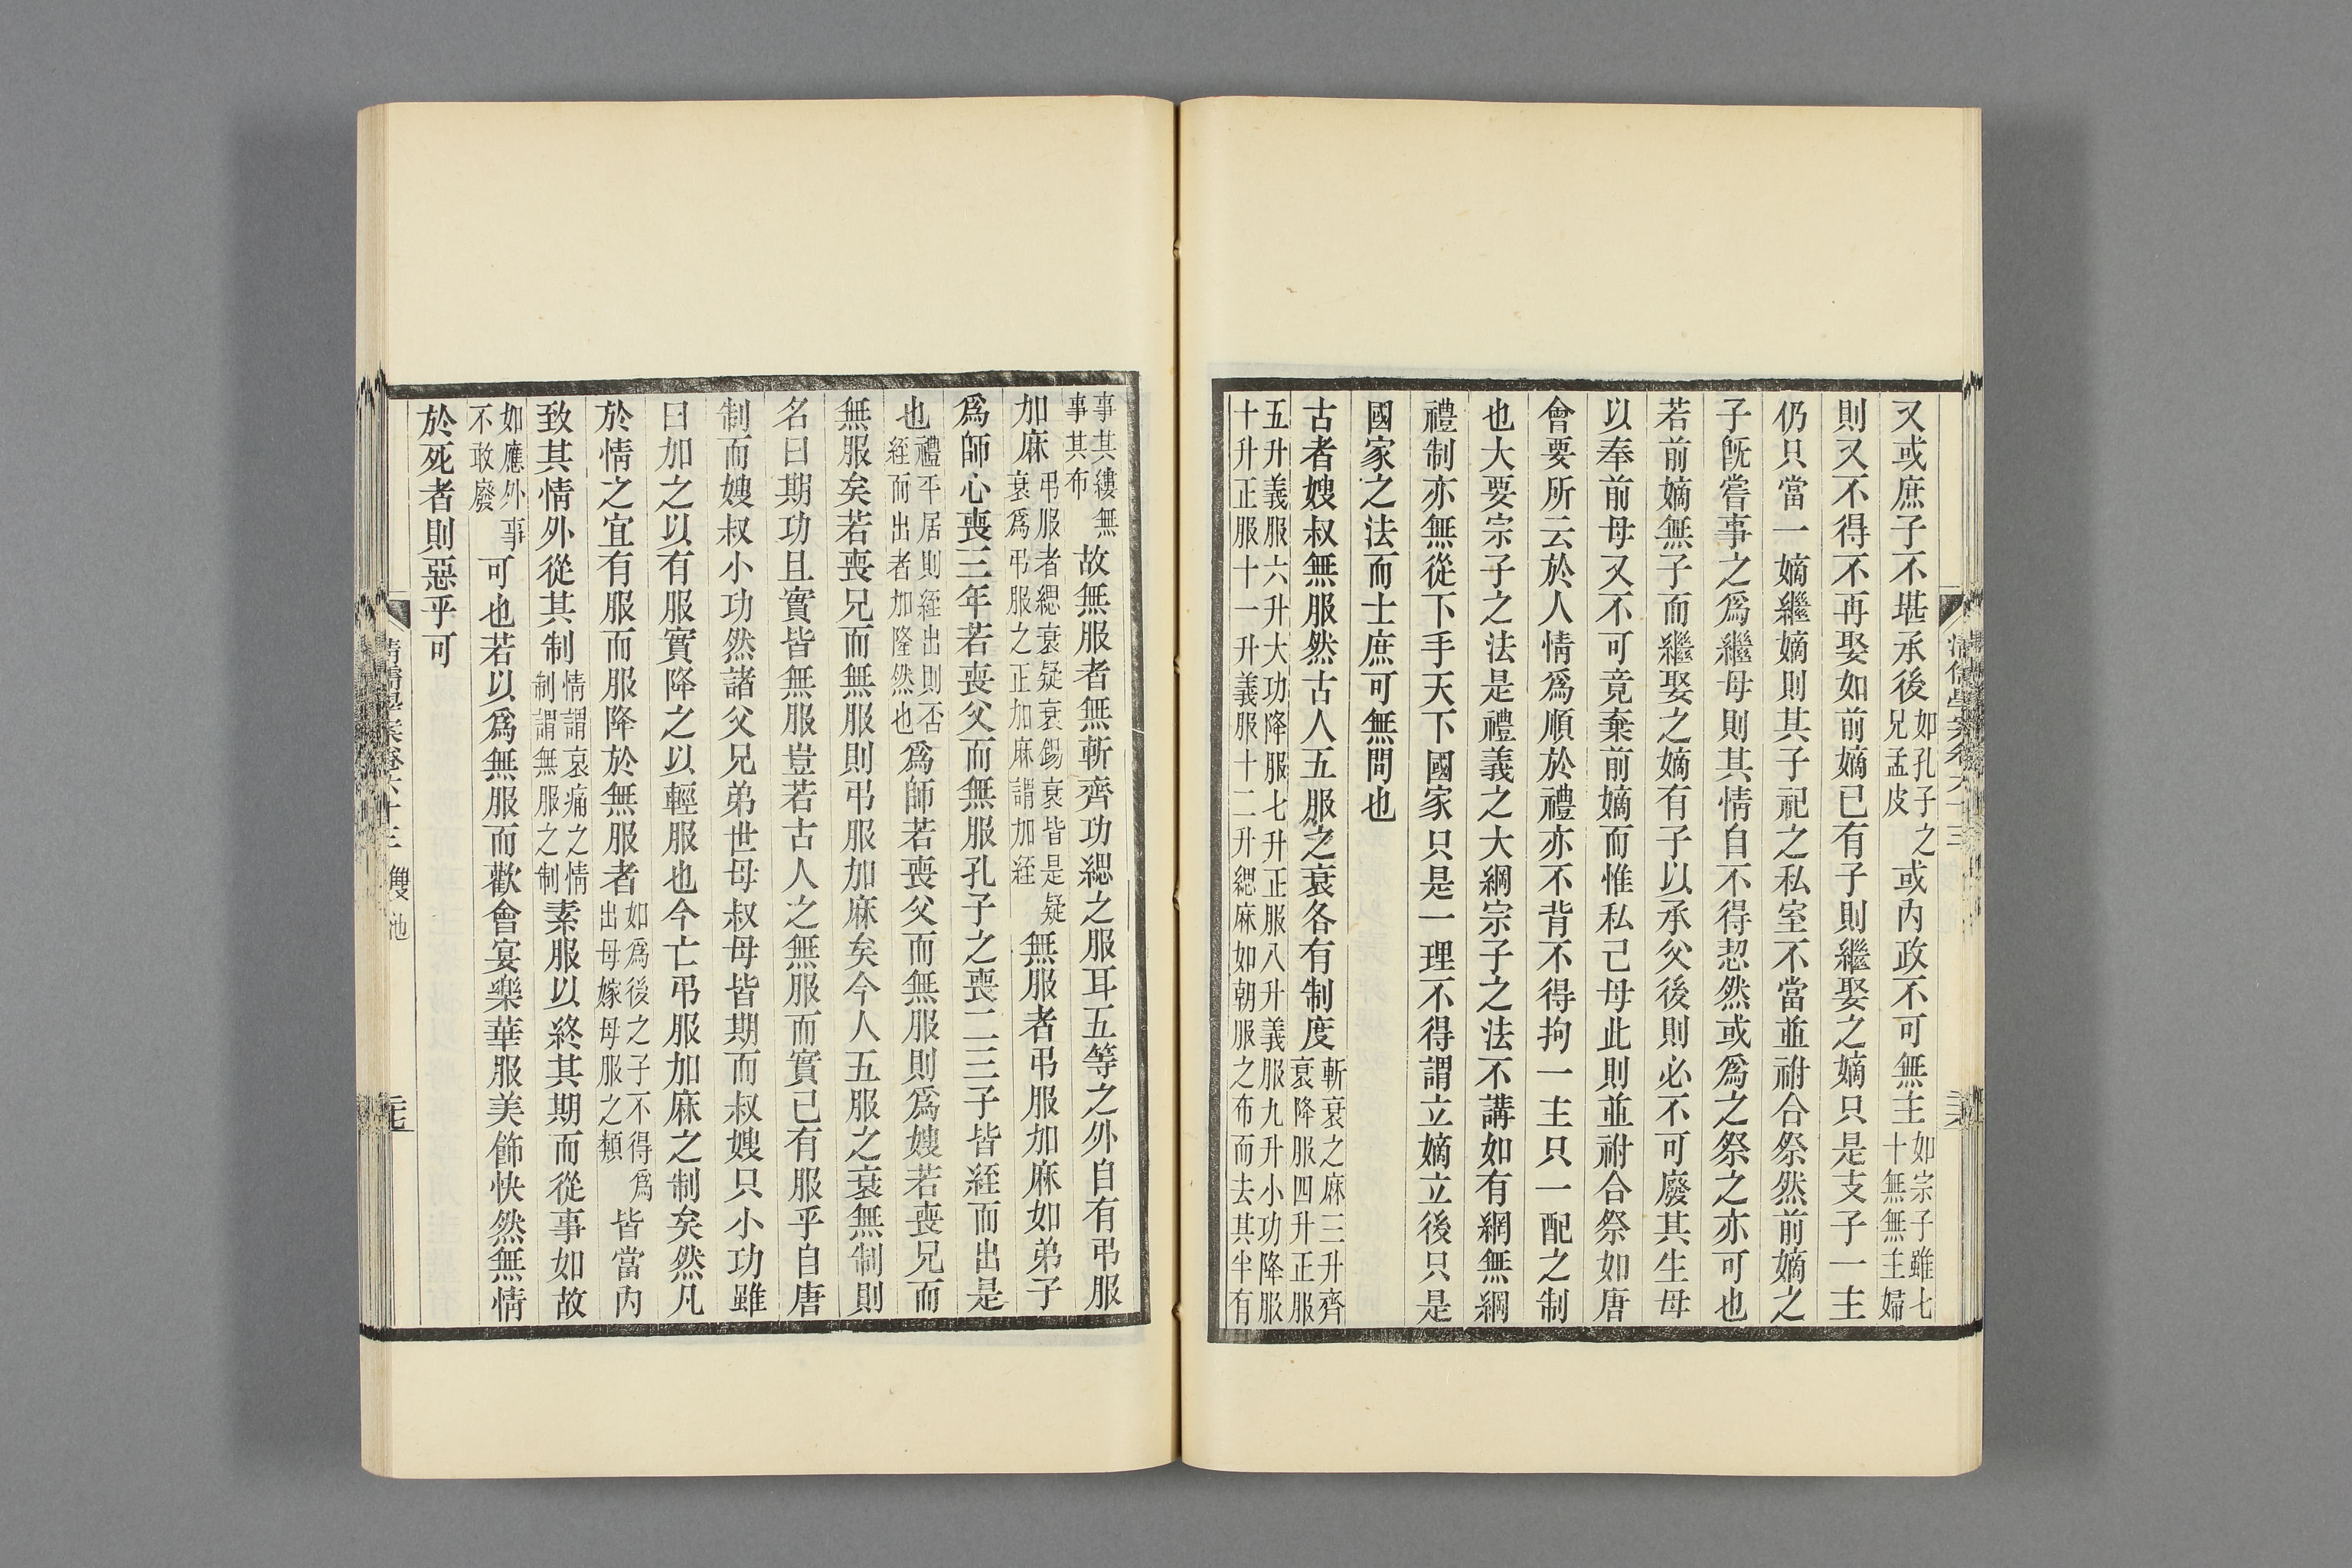 又或庶子不堪承後如孔子之兄孟皮或內政不可無主如宗子雖七十無無主婦
則又不得不再娶如前嫡已有子則繼娶之嫡只是支子一主
仍只當一嫡繼嫡則其子祀之私室不當並祔合祭然前嫡之
子既嘗事之爲繼母則其情自不得恝然或爲之祭之亦可也
若前嫡無子而繼娶之嫡有子以承父後則必不可廢其生母
以奉前母又不可竟棄前嫡而惟私己母此則並祔合祭如唐
會要所云於人情爲順於禮亦不背不得拘一主只一配之制
也大要宗子之法是禮義之大綱宗子之法不講如有網無綱
禮制亦無從下手天下國家只是一理不得謂立嫡立後只是
國家之法而士庶可無問也
古者嫂叔無服然古人五服之衰各有制度斬衰之麻三升齊衰降服四升正服
五升義服六升大功降服七升正服八升義服九升小功降服
十升正服十一升義服十二升緦麻如朝服之布而去其半有
事其縷無事其布故無服者無斬齊功緦之服耳五等之外自有弔服
加麻弔服者緦衰疑衰錫衰皆是疑衰爲弔服之正加麻謂加絰無服者弔服加麻如弟子
爲師心喪三年若喪父而無服孔子之喪二三子皆絰而出是
也禮平居則絰出則否絰而出者加隆然也爲師若喪父而無服則爲嫂若喪兄而
無服矣若喪兄而無服則弔服加麻矣今人五服之衰無制則
名曰期功且實皆無服豈若古人之無服而實已有服乎自唐
制而嫂叔小功然諸父兄弟世母叔母皆期而叔嫂只小功雖
曰加之以有服實降之以輕服也今亡弔服加麻之制矣然凡
於情之宜有服而服降於無服者如爲後之子不得爲出母嫁母服之類皆當內
致其情外從其制情謂哀痛之情制謂無服之制素服以終其期而從事如故
如應外事不敢廢可也若以爲無服而歡會宴樂華服美飾快然無情
於死者則惡乎可
清儒學案卷六十三 雙池